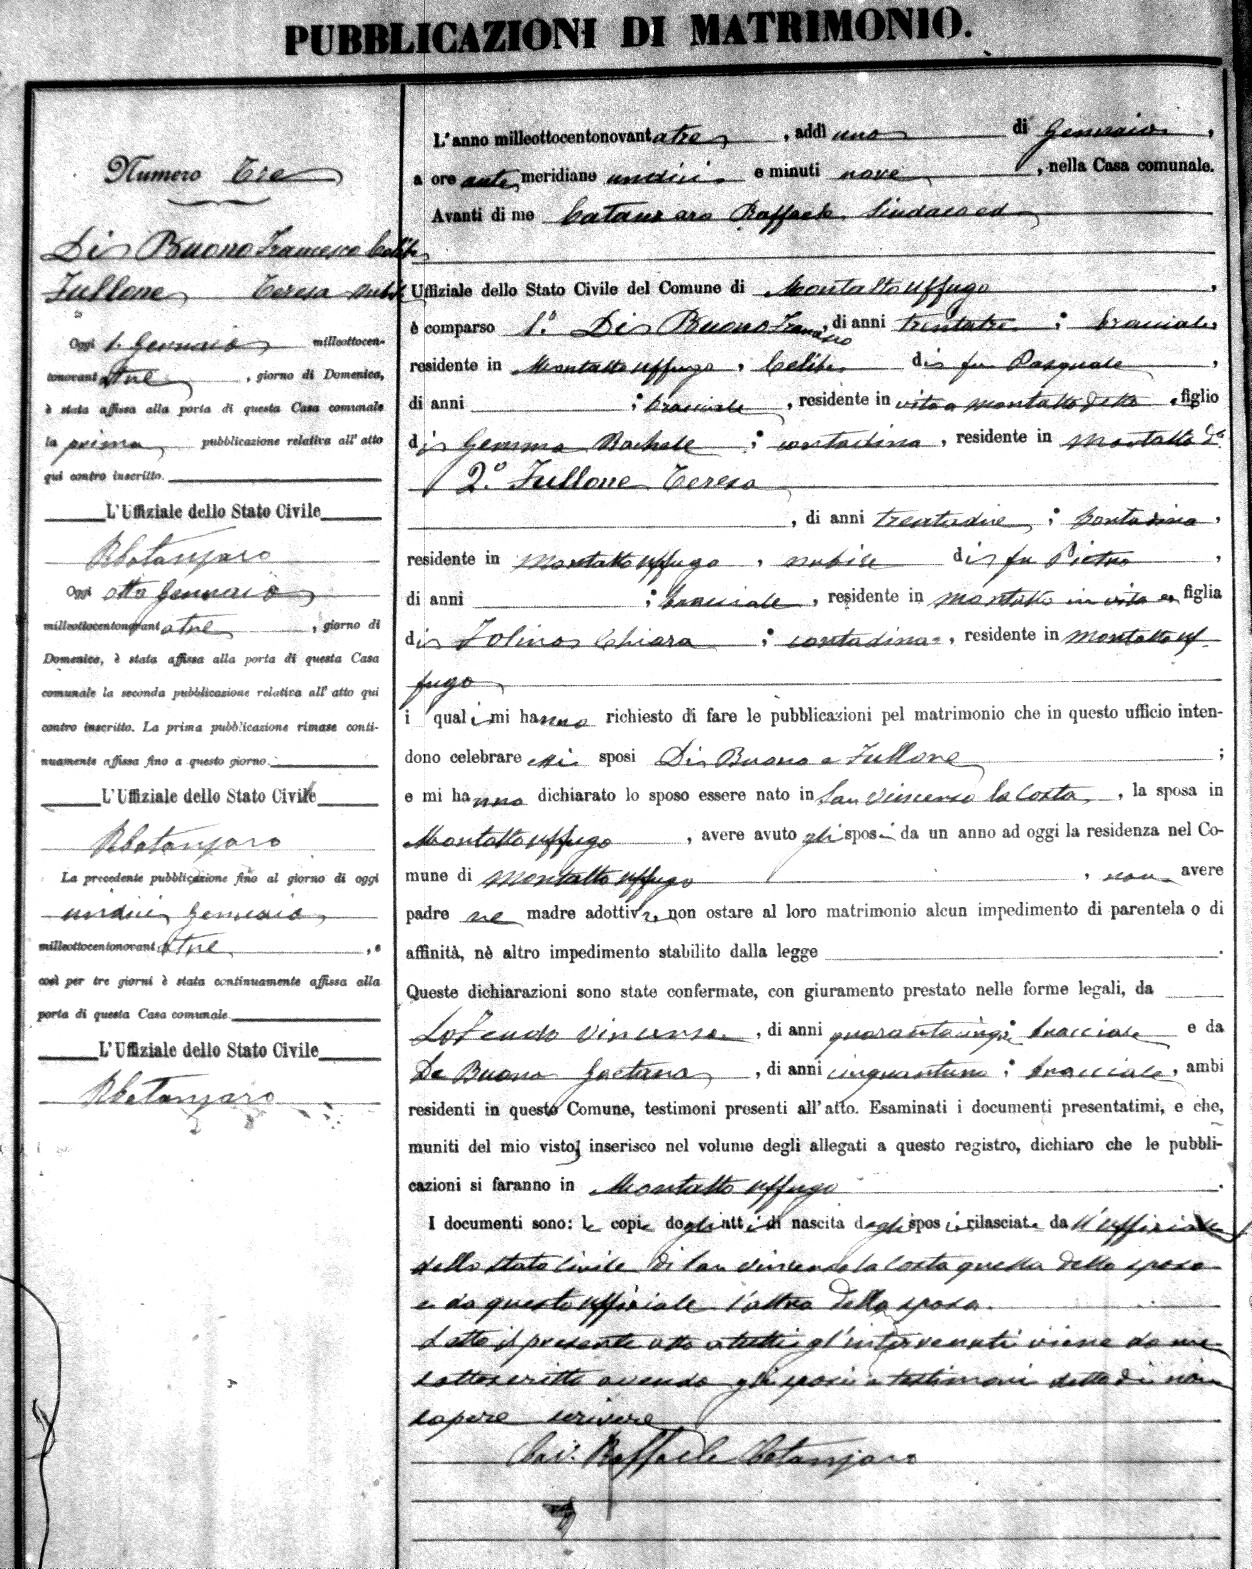 PUBBLICAZIONI DI MATRIMONIO.
Numero Tre
Di Buono Francesco Celibe
Fullone Teresa nubile
Oggi 1. Gennaio milleottocen-
tonovantatre, giorno di Domenica,
è stata affissa alla porta di questa Casa comunale
la prima pubblicazione relativa all' atto
qui contro inscritto.
L'Uffiziale dello Stato Civile
RCatanzaro
Oggi otto Gennaio
milleottocentonovantatre, giorno di
Domenica, è stata affissa alla porta di questa Casa
comunale la seconda pubblicazione relativa all' atto qui
contro inscritto. La prima pubblicazione rimase conti-
nuamente affissa fino a questo giorno.
L'Uffiziale dello Stato Civile
RCatanzaro
La precedente pubblicazione fino al giorno di oggi
undici Gennaio
milleottocentonovantatre, e
così per tre giorni è stata continuamente affissa alla
porta di questa Casa comunale.
L'Uffiziale dello Stato Civile
RCatanzaro
L'anno milleottocentonovantatre, addì uno di Gennaio,
a ore antemeridiane undici e minuti nove, nella Casa comunale.
Avanti di me Catanzaro Raffaele Sindaco ed
Uffiziale dello Stato Civile del Comune di Montalto Uffugo,
è comparso 1.º Di Buono Francesco, di anni trentatre; bracciale,
residente in Montalto Uffugo, Celibe di fu Pasquale,
di anni ; bracciale, residente in vita a Montalto detto, figlio
di Gemma Rachele; contadina, residente in Montalto
2.º Fullone Teresa
, di anni trentadue; Contadina,
residente in Montalto Uffugo, nubile di fu Pietro,
di anni ; bracciale, residente in Montalto in vita e figlia
di Folino Chiara; contadina, residente in Montalto Uf-
fugo
i quali mi hanno richiesto di fare le pubblicazioni pel matrimonio che in questo ufficio inten-
dono celebrare essi sposi Di Buono e Fullone;
e mi hanno dichiarato lo sposo essere nato in San Vincenzo la Costa, la sposa in
Montalto Uffugo, avere avuto gli sposi da un anno ad oggi la residenza nel Co-
mune di Montalto Uffugo, non avere
padre ne madre adottivi, non ostare al loro matrimonio alcun impedimento di parentela o di
affinità, nè altro impedimento stabilito dalla legge.
Queste dichiarazioni sono state confermate, con giuramento prestato nelle forme legali, da
LoFeudo Vincenzo, di anni quarantacinque; bracciale e da
De Buono Gaetano, di anni cinquantuno; bracciale, ambi
residenti in questo Comune, testimoni presenti all'atto. Esaminati i documenti presentatimi, e che,
muniti del mio visto, inserisco nel volume degli allegati a questo registro, dichiaro che le pubbli-
cazioni si faranno in Montalto Uffugo.
I documenti sono: le copie degli atti di nascita degli sposi, rilasciate da l'uffiziale
dello stato Civile di San Vincenzo la Costa quella dello sposo
e da questo uffiziale l'altra della sposa.
Letto il presente atto a tutti gl'intervenuti viene da me
sottoscritto avendo gli sposi e testimoni detto di non
sapere scrivere
Cav. Raffaele Catanzaro